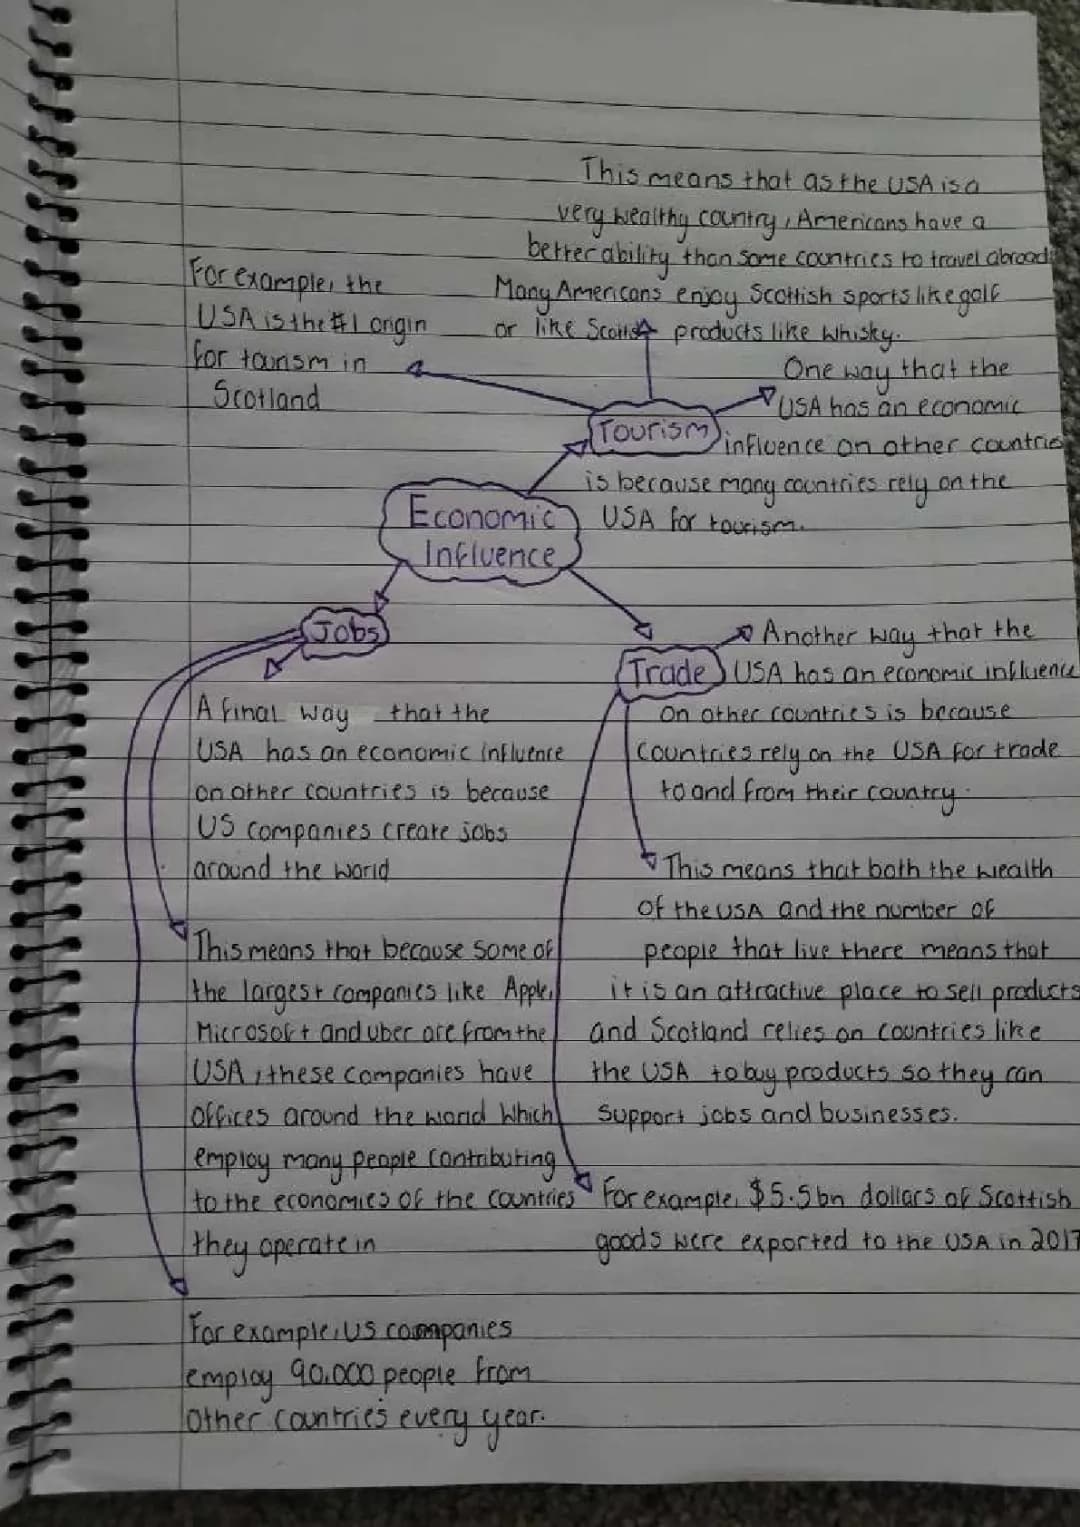 This means that as the USA is a
very wealthy country, Americans have a
better ability than some countries to travel abroad.
Many Americans enjoy Scottish sports like golf
or like Scottish products like whisky.
For example, the
USA is the #1 origin
for tourism in
Scotland
Tourism
One way that the
USA has an economic
influence on other countries
is because many countries rely on the
USA for tourism.
Economic
Influence
Jobs
A final way that the
USA has an economic influence
on other countries is because
US companies create jobs
around the world
This means that because some of
the largest companies like Apple,
Microsoft and uber are from the
USA, these companies have
offices around the world which
employ many people contributing
to the economies of the countries
they operate in
For example, US companies
employ 90,000 people from
other countries every year.
Trade
Another way that the
USA has an economic influence
on other countries is because
countries rely on the USA for trade
to and from their country.
This means that both the wealth
of the USA and the number of
people that live there means that
it is an attractive place to sell products
and Scotland relies on countries like
the USA to buy products so they can
support jobs and businesses.
For example, $5.5bn dollars of Scottish
goods were exported to the USA in 2017